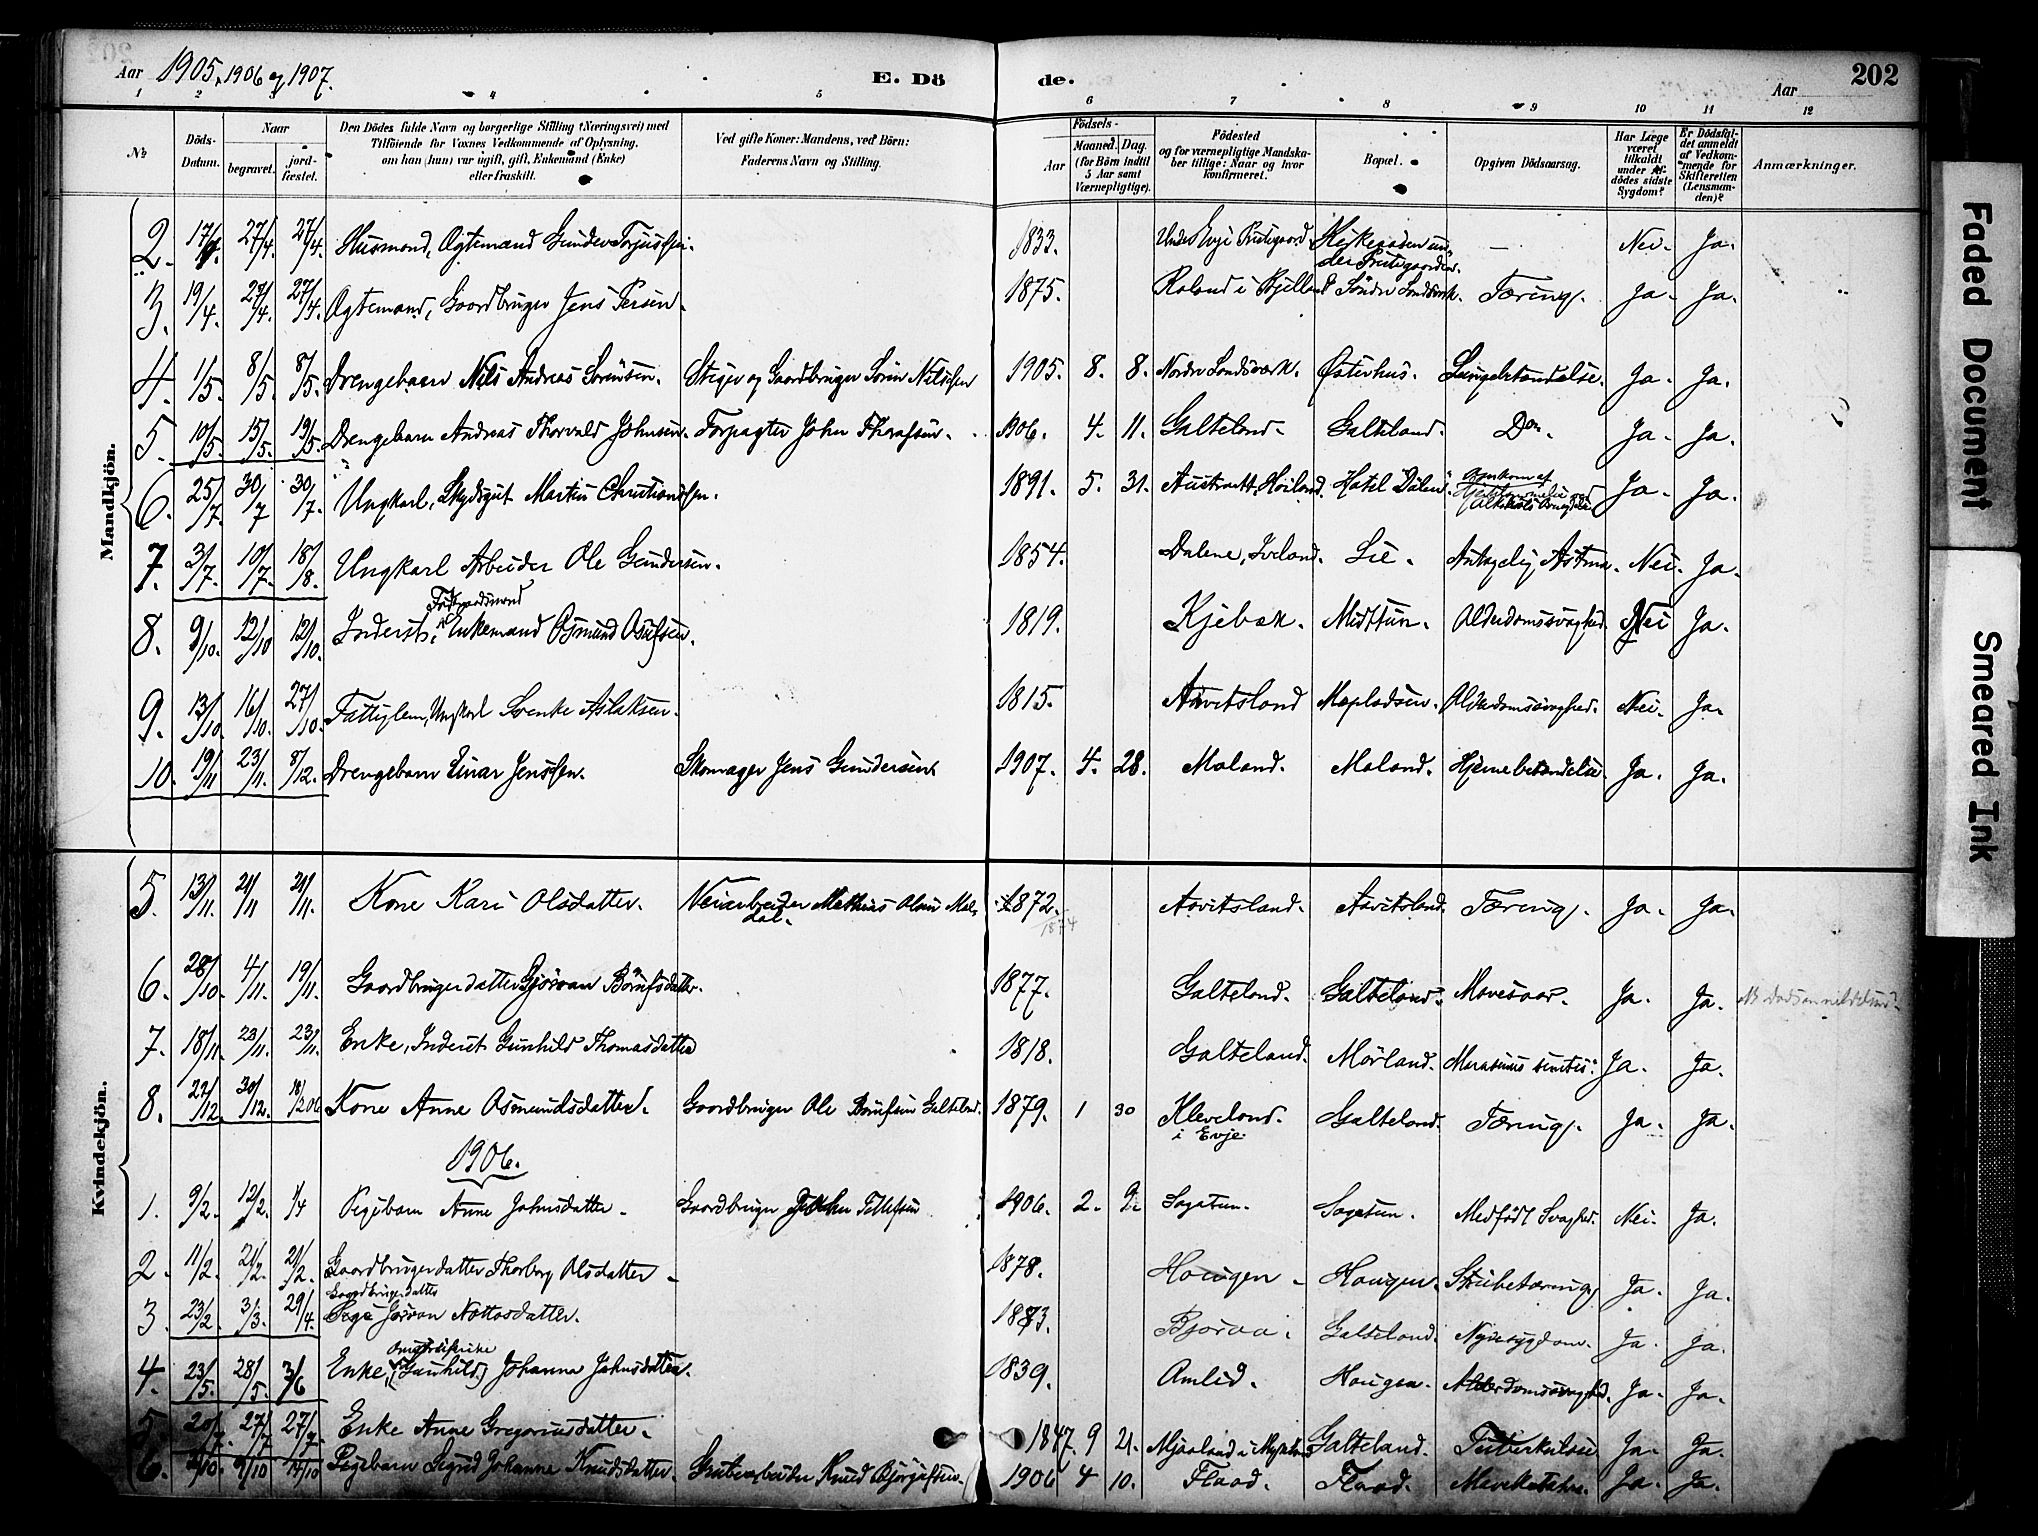 Aar 1905, 1906 og 1907. E. Dö de. Aar 202
1 2 4 5 6 7 8 9 10 11 12
No
Döds-Datum.
Naar
begravet.
jord-fæstet.
Den Dödes fulde Navn og borgerlige Stilling (Næringsvei) med
Tilföiende for Voxnes Vedkommende af Oplysning,
om han (hun) var ugift, gift, Enkemand (Enke)
eller fraskilt.
Ved gifte Koner: Mandens, ved Börn:
Faderens Navn og Stilling.
Födsels-
Aar
Maaned. Dag.
(for Börn indtil
5 Aar samt
Værnepligtige).
Födested
og for værnepligtige Mandska-
ber tillige: Naar og hvor
konfirmeret.
Bopæl.
Opgiven Dödsaarsag.
Har Læge
været
tilkaldt
under Af-
dödes sidste
Sygdom?
Er Dödsfal-
det anmeldt
af Vedkom-
mende for
Skifteretten
(Lensman-
den)?
Anmærkninger.
Mandkjön.
2. 17/4. 27/4. 27/4. Husmand, Ægtemand Gunder Torjussen. 1833. Nei. Ja.
3. 19/4. 27/4. 27/4. Ægtemand, Gaardbruger Jens Persen. 1875. Tæring. Ja. Ja.
4. 1/5. 8/5. 8/5. Drengebarn Nils Andreas Sörensen. Steiger og Gaardbruger Sören Nilssen 1905. 8. 8. Nordre Landsverk. Østerhus. Lungebetændelse. Ja. Ja.
5. 10/5. 15/5. 19/5. Drengebarn Andreas Thorvald Johnsen. Forpagter John 1906. 4. 11. Galteland. Galteland. Do. Ja. Ja.
6. 25/7. 30/7 30/7. Ungkarl, Skydsgut Martin Christiansen. 1891. 5. 31. Austratt, Höiland. Hotel "Dölen" Ja. Ja.
7. 3/7. 10/7. 18/8. Ungkarl Arbeider Ole Gundersen. 1854. Dalene, Iveland. Lie. Antagelig Astma. Nei. Ja.
8. 9/10. 12/10 12/10. Inderst, Enkemand Osmund 1819. Kjebek. Midttun. Alderdomssvaghed. Nei Ja.
9. 13/10. 16/10. 27/10. Fattiglem, Ungkarl Svenke Aslaksen. 1815. Aavitsland Alderdomssvaghed. Nei. Ja.
10. 19/11 23/11. 8/12. Drengebarn Einar Jenssen. Skomager Jens Gundersen. 1907. 4. 28. Moland. Moland. Hjernebetændelse. Ja. Ja.
Kvindekjön.
5. 13/11. 21/11 21/11. Kone Kari Olsdatter. Veiarbeider Mathias Olsen 1872. 1874 Aavitsland. Aavitsland. Tæring. Ja. Ja.
6. 28/10. 4/11. 19/11. Gaardbrugerdatter 1877. Galteland. Galteland. Mavesaar. Ja. Ja.
7. 18/11. 23/11. 23/11. Enke, Inderst Gunhild Thomasdatter 1818. Galteland. Mörland. Ja. Ja.
8. 22/12 30/12. 18/1 206 Kone Anne Osmundsdatter. Gaardbruger Ole Galteland. 1879. 1 30 Kleveland. i Evje. Galteland. Tæring. Ja. Ja.
1906.
1. 9/2. 12/2. 1/4 Pigebarn Anne Johnsdatter. Gaardbruger John Tellefsen 1906. 2. 9. Sagatun. Sagatun. Medfödt Svaghed. Nei. Ja.
2. 11/2. 21/2. 21/2. Gaardbrugerdatter Thorborg Olsdatter 1878. Hougen. Hougen. Strubetæring Ja. Ja.
Gaardbrugerdatter
3. 23/2. 3/3. 29/4. Pige Jöraan 1873. Bjoraa. Galteland. Nyresygdom. Ja. Ja.
4. 23/5. 28/5. 3/6 Enke, (Gunhild) Johanne Johnsdatter. 1839. Omlid. Hougen. Alderdomssvaghed. Ja. Ja.
5. 20/7. 27/7 27/7. Enke Anne Gregoriusdatter. 1847. 9 21. Mjaaland i Galteland. Tuberkulose Ja. Ja.
6. Pigebarn Sigrid Johanne Knudsdatter. Grubearbeider Knud 1906 4 10. Flaad. Flaad. Ja. Ja.
Faded Document
Smeared Ink